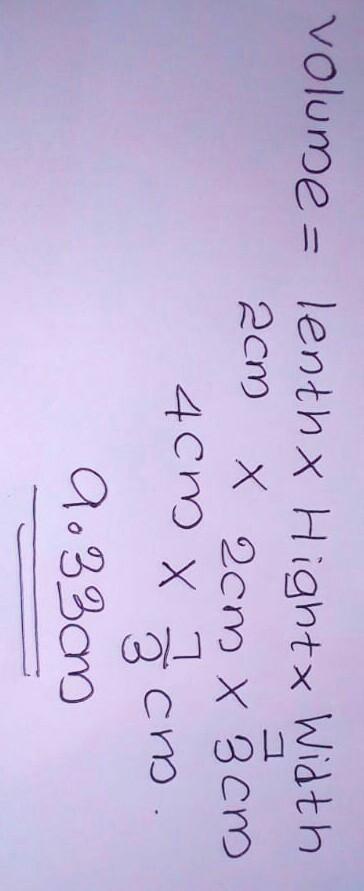 volume = lenth x Hight x Width
2cm x 2cm x 7/3 cm
4cm x 7/3 cm.
9.33cm